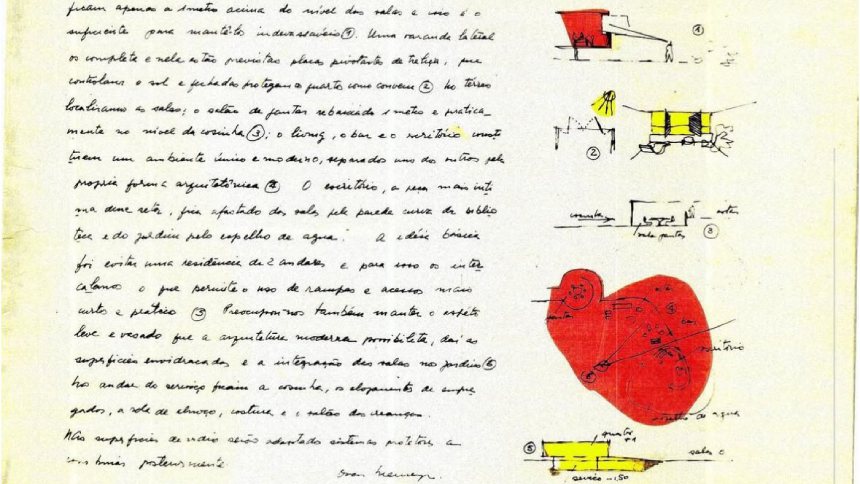 ficam apenas a 1 metro acima do nível das salas e isso é o
suficiente para mantê-lo indevassável ①. Uma varanda lateral
os completa e nela estão previstas placas pivotantes de treliça, que
controlam o sol e fechadas protegem o quarto como convem ② No terreo
localizamos as salas; o salão de jantar rebaixado 1 metro e pratica-
mente no nivel da cozinha ③; o living, o bar e o escritório consti
tuem um ambiente único e moderno, separados uns dos outros pela
propria forma arquitetônica ④ O escritório, a peça mais inti
ma deve ser, fica afastado das salas pela parede curva da biblio
teca e do jardim pelo espelho de agua. A idéia básica
foi evitar uma residência de 2 andares e para isso os inter
calamos o que permite o uso de rampas e acesso mais
curto e pratico ⑤ Preocupou-nos também manter o aspéto
leve e vasado que a arquitetura moderna possibilita, daí as
superficies envidraçadas e a integração das salas no jardim ⑥
No andar de serviço ficam a cosinha, os alojamentos de empre
gados, a sala de almoço, costura e o salão das crianças.
Nas superficies de vidro serão adaptado sistemas protetores a
combinar posteriormente.
Oscar Niemeyer.
①
②
sala jantar ③
escritório
espelho de agua
⑤ quartos +1
salas 0
serviço -1,50